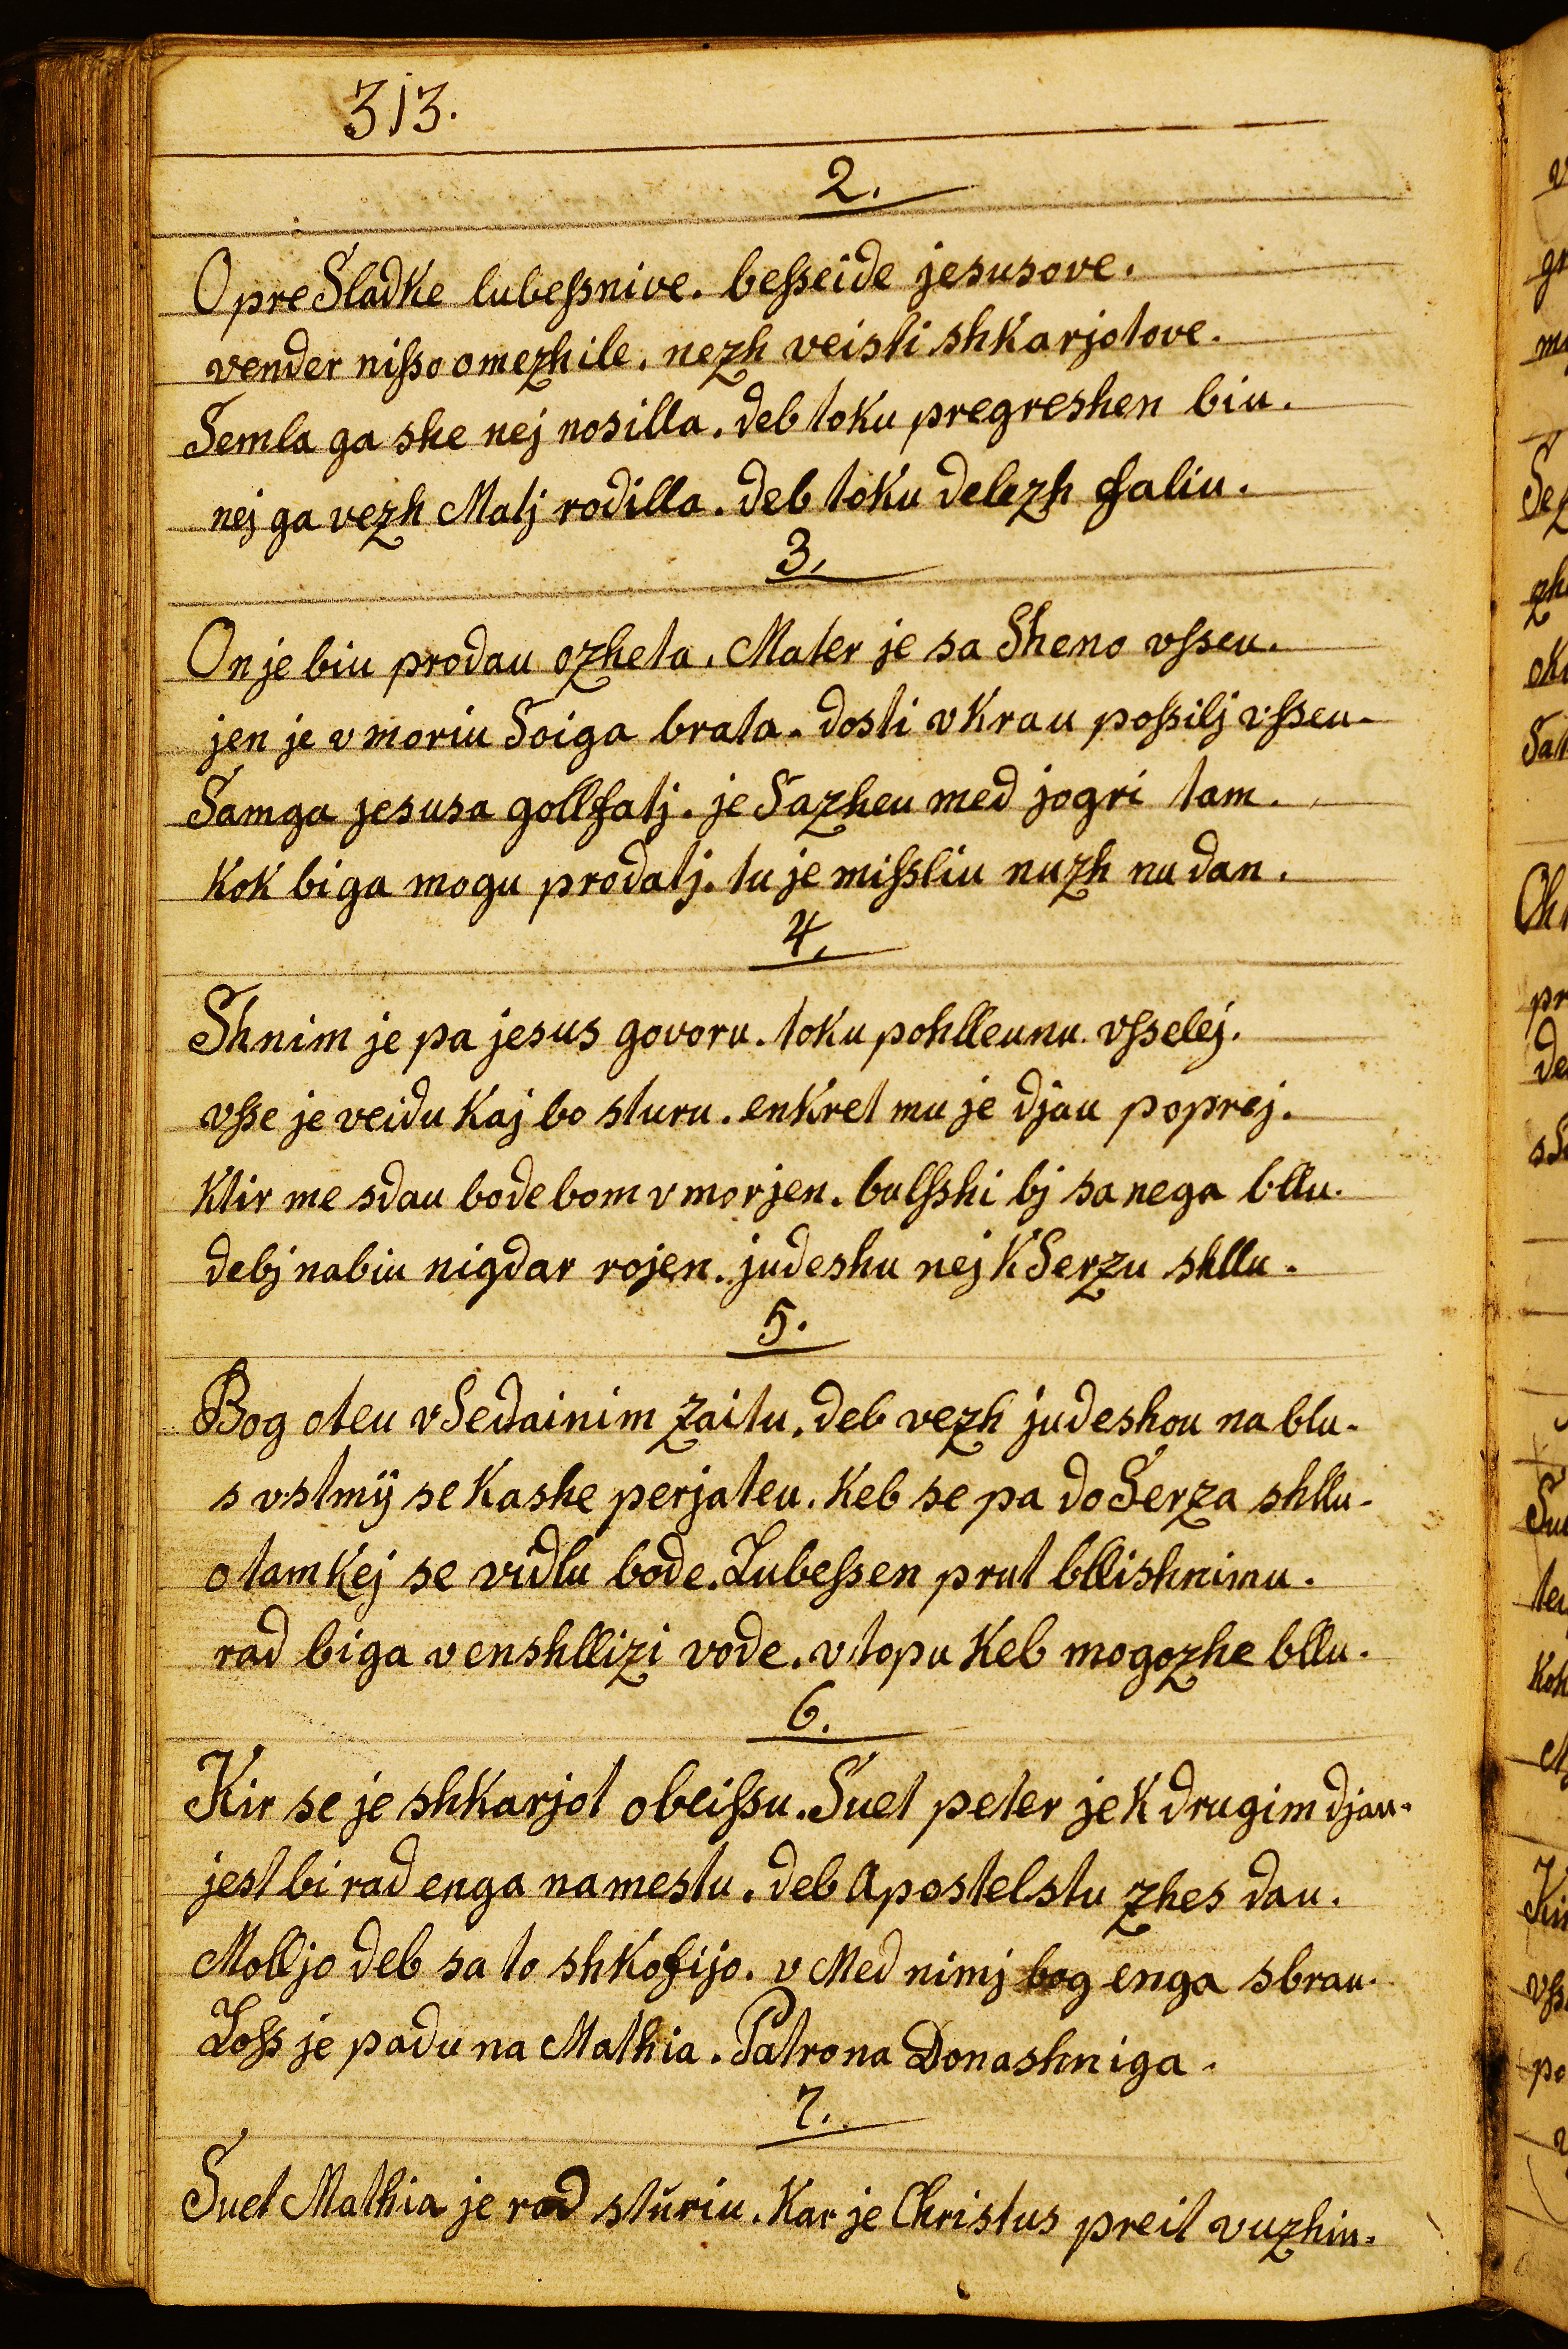 313.
2.
O pre Sladke lubeſsnive. beſseide jesusove.
vender niſso omezhile. nezh veisti shkarjotove.
Semla ga she nej nosilla. deb toku pregreshen biu.
nej ga vezh Matj rodilla. deb toku delezh faliu.
3.
On je biu prodau ozheta. Mater je sa Sheno vſseu.
jen je v moriu Soiga brata. dosti v krau poſsilj vſseu.
Samga jesusa gollfatj. je Sazheu med jogri tam.
kok bi ga mogu prodatj. tu je miſsliu nuzh nu dan.
4.
Shnim je pa jesus govoru. toku pohlleunu vſselej.
vſse je veidu kaj bo sturu. enkret mu je djau poprej.
ktir me sdau bode bom vmorjen. bulſshi bj sa nega bllu.
debj nabiu nigdar rojen. judeshu nej k Serzu shllu.
5.
Bog oteu v Sedainim zaitu. deb vezh judeshou na blu.
s vstmÿ se kashe perjateu. keb se pa do Serza shllu.
o tam kej se vidlu bode. Lubeſsen prut bllishnimu.
rad bi ga v enshllizi vode. vtopu keb mogozhe bllu.
6.
Kir se je shkarjot obeiſsu. Suet peter je k drugim djau.
jest bi rad enga na mestu. deb Apostelstu zhes dau.
Molljo deb sa to shkofijo. v Med nimj bog enga sbrau.
Loſs je padu na Mathia. Patrona Donashniga.
7.
Suet Mathia je rad sturiu. Kar je Christus preit vuzhiu.